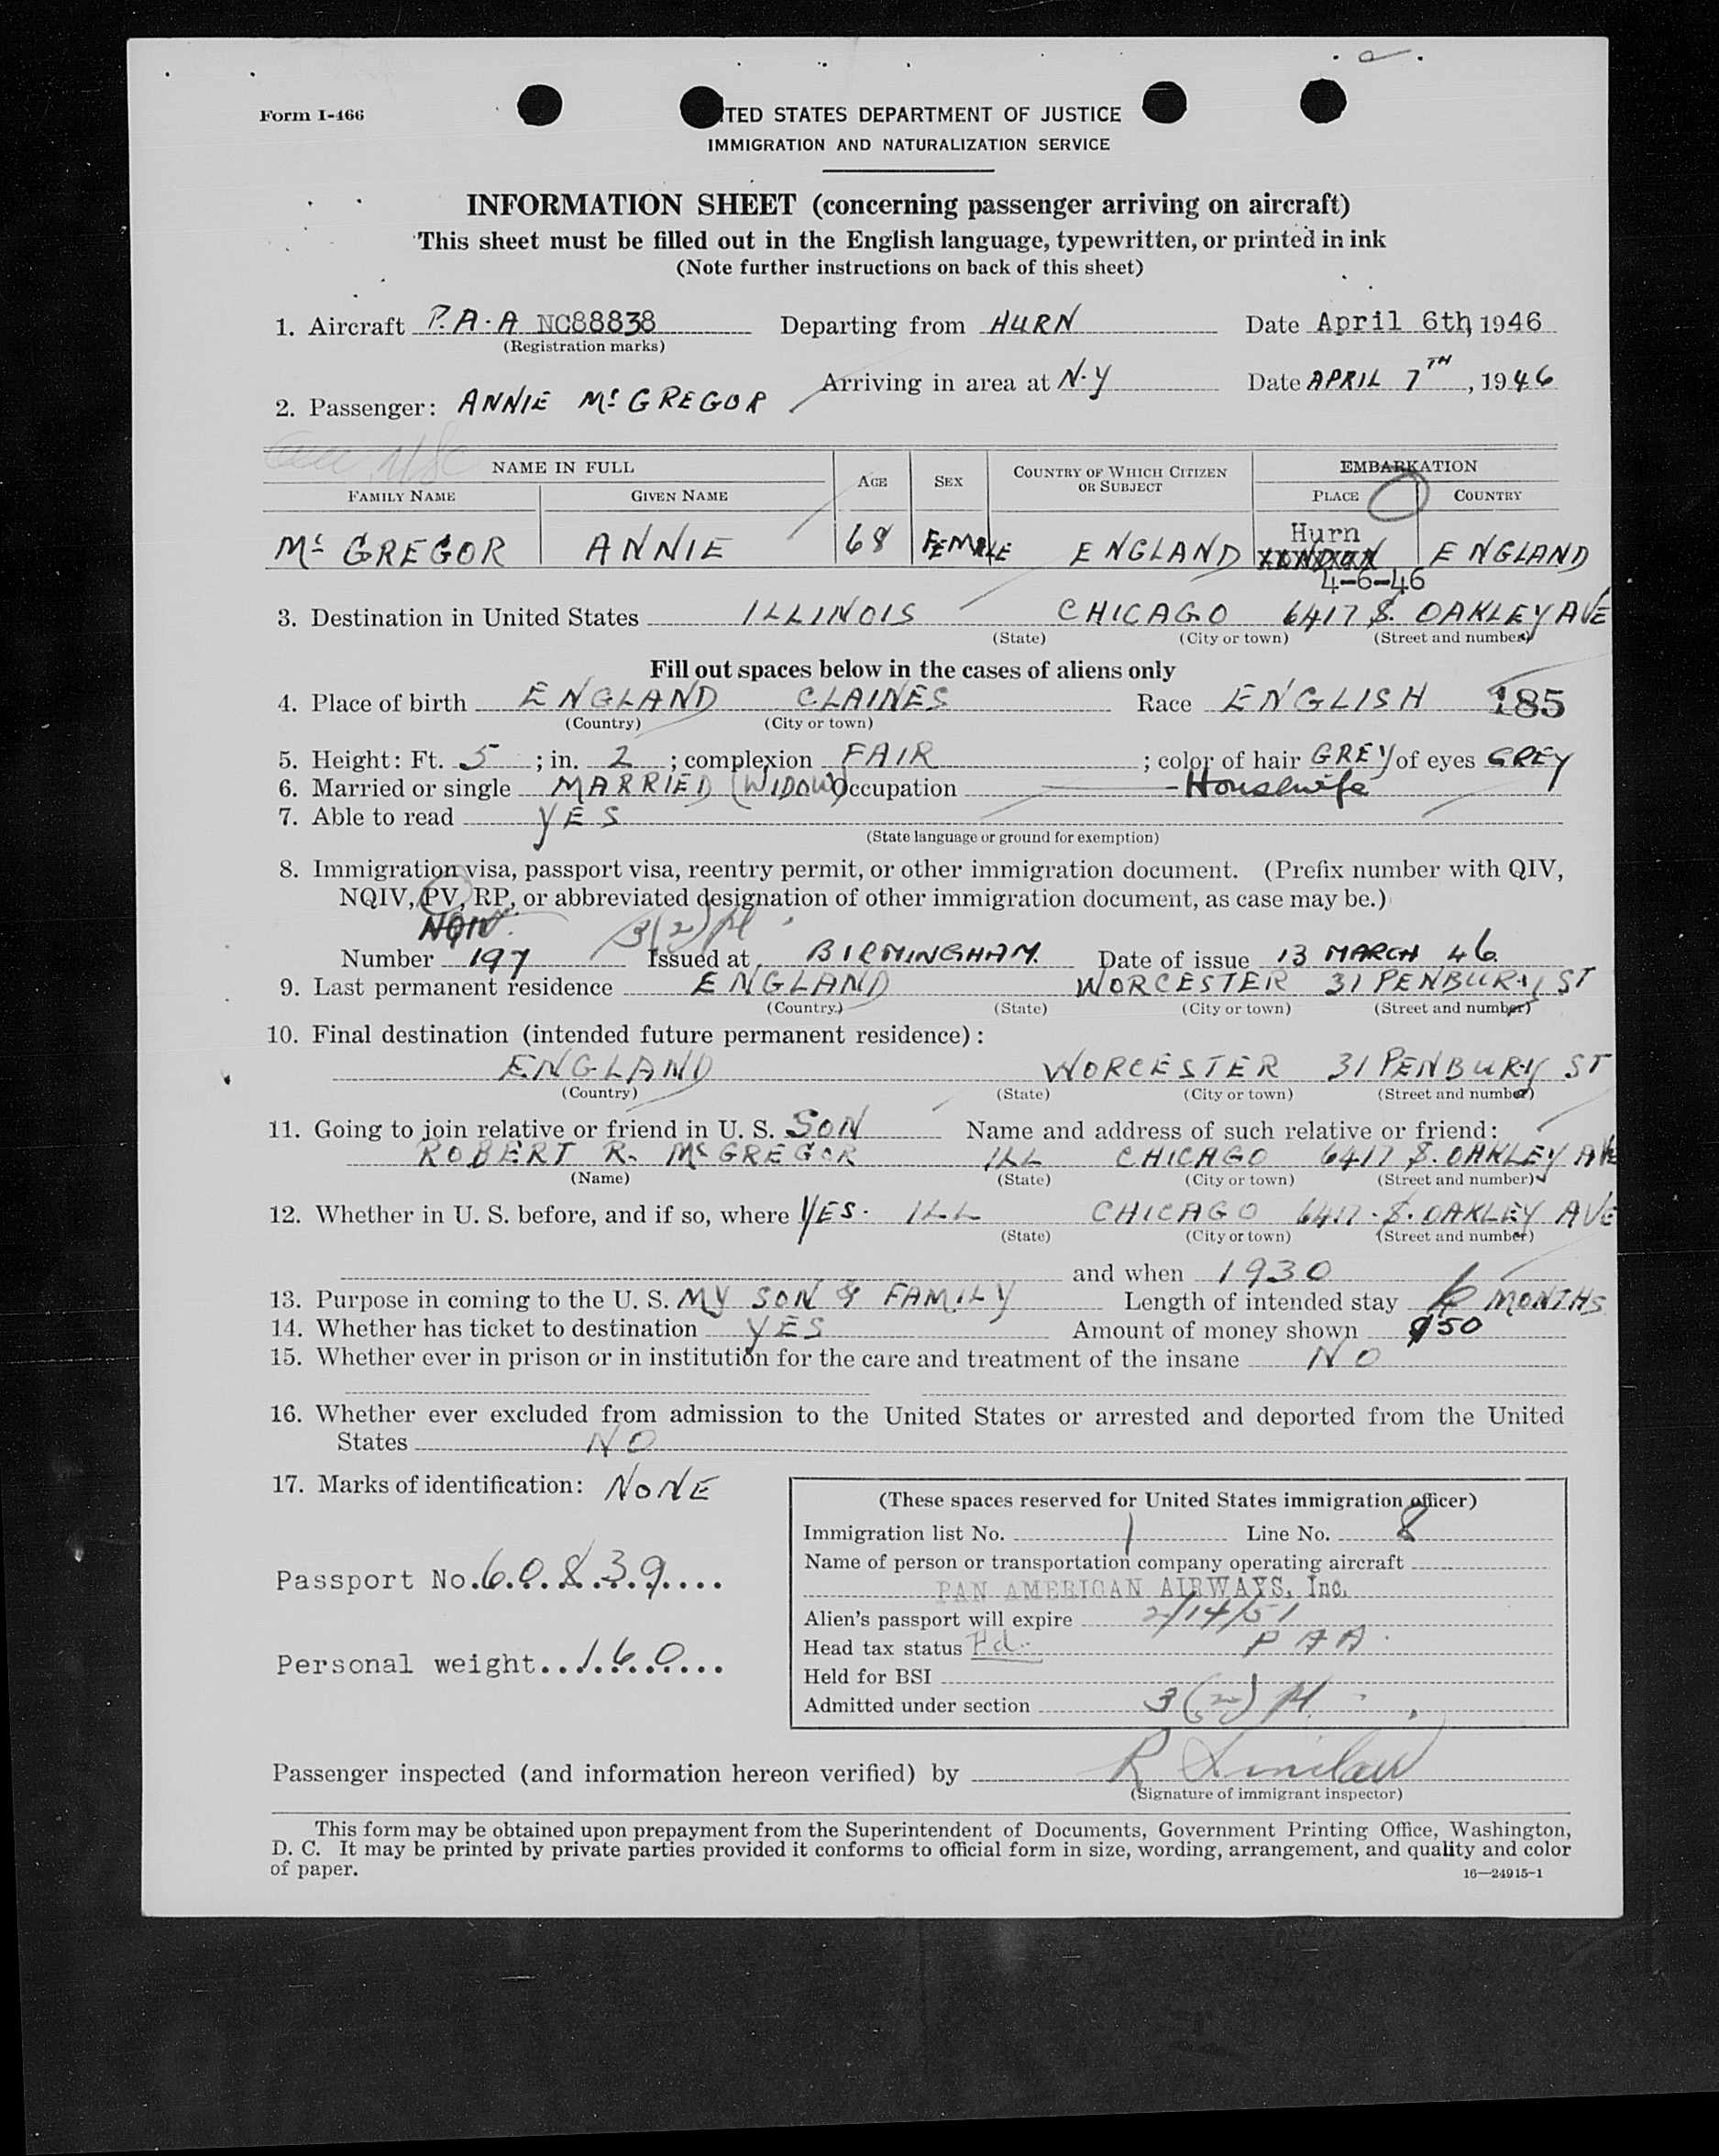 Form I-466
TED STATES DEPARTMENT OF JUSTICE
IMMIGRATION AND NATURALIZATION SERVICE
INFORMATION SHEET (concerning passenger arriving on aircraft)
This sheet must be filled out in the English language, typewritten, or printed in ink
(Note further instructions on back of this sheet)
1. Aircraft P.A.A NC88838 Departing from HURN Date April 6th, 1946
(Registration marks)
Arriving in area at N.Y Date APRIL 7TH, 1946
2. Passenger: ANNIE Mc GREGOR
NAME IN FULL AGE SEX COUNTRY OF WHICH CITIZEN OR SUBJECT EMBARKATION
FAMILY NAME GIVEN NAME PLACE COUNTRY
Hurn
Mc GREGOR ANNIE 68 FEMALE ENGLAND LONDON ENGLAND
4-6-46
3. Destination in United States ILLINOIS CHICAGO 6417 S. OAKLEY AVE
(State) (City or town) (Street and number)
Fill out spaces below in the cases of aliens only
4. Place of birth ENGLAND CLAINES Race ENGLISH 185
(Country) (City or town)
5. Height: Ft. 5 ; in. 2 ; complexion FAIR ; color of hair GREY of eyes GREY
6. Married or single MARRIED (WIDOW) Occupation Housewife
7. Able to read YES
(State language or ground for exemption)
8. Immigration visa, passport visa, reentry permit, or other immigration document. (Prefix number with QIV,
NQIV, PV, RP, or abbreviated designation of other immigration document, as case may be.)
NQIV. 3(2)
Number 197 Issued at BIRMINGHAM. Date of issue 13 MARCH 46
9. Last permanent residence ENGLAND WORCESTER 31 PENBURY ST
(Country) (State) (City or town) (Street and number)
10. Final destination (intended future permanent residence):
ENGLAND WORCESTER 31 PENBURY ST
(Country) (State) (City or town) (Street and number)
11. Going to join relative or friend in U. S. SON Name and address of such relative or friend:
ROBERT R. Mc GREGOR ILL CHICAGO 6417 S. OAKLEY AVE
(Name) (State) (City or town) (Street and number)
12. Whether in U. S. before, and if so, where YES. ILL CHICAGO 6417. S. OAKLEY AVE
(State) (City or town) (Street and number)
and when 1930
13. Purpose in coming to the U. S. MY SON & FAMILY Length of intended stay 6 MONTHS
14. Whether has ticket to destination YES Amount of money shown $50
15. Whether ever in prison or in institution for the care and treatment of the insane NO
16. Whether ever excluded from admission to the United States or arrested and deported from the United
States NO
17. Marks of identification: NONE
Passport No. 60839
Personal weight 160
(These spaces reserved for United States immigration officer)
Immigration list No. 1 Line No. 8
Name of person or transportation company operating aircraft
PAN AMERICAN AIRWAYS, Inc.
Alien's passport will expire 2/14/51
Head tax status Pd. P A A
Held for BSI
Admitted under section 3(2)
Passenger inspected (and information hereon verified) by R
(Signature of immigrant inspector)
This form may be obtained upon prepayment from the Superintendent of Documents, Government Printing Office, Washington,
D. C. It may be printed by private parties provided it conforms to official form in size, wording, arrangement, and quality and color
of paper.
16—24915-1